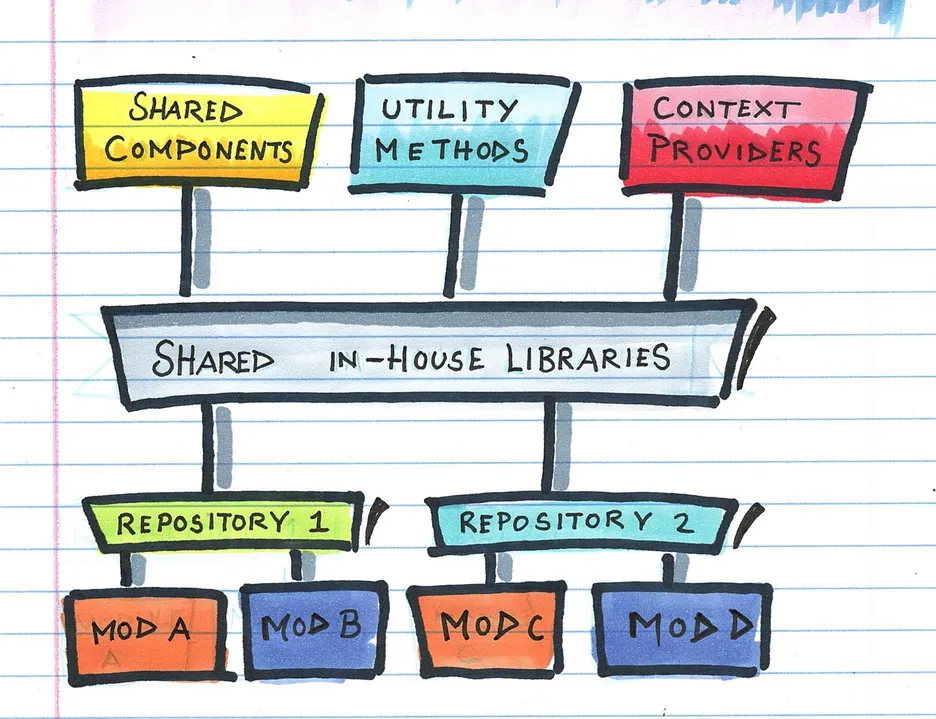 SHARED
COMPONENTS
UTILITY
METHODS
CONTEXT
PROVIDERS
SHARED IN-HOUSE LIBRARIES
REPOSITORY 1
REPOSITORY 2
MOD A
MOD B
MOD C
MOD D